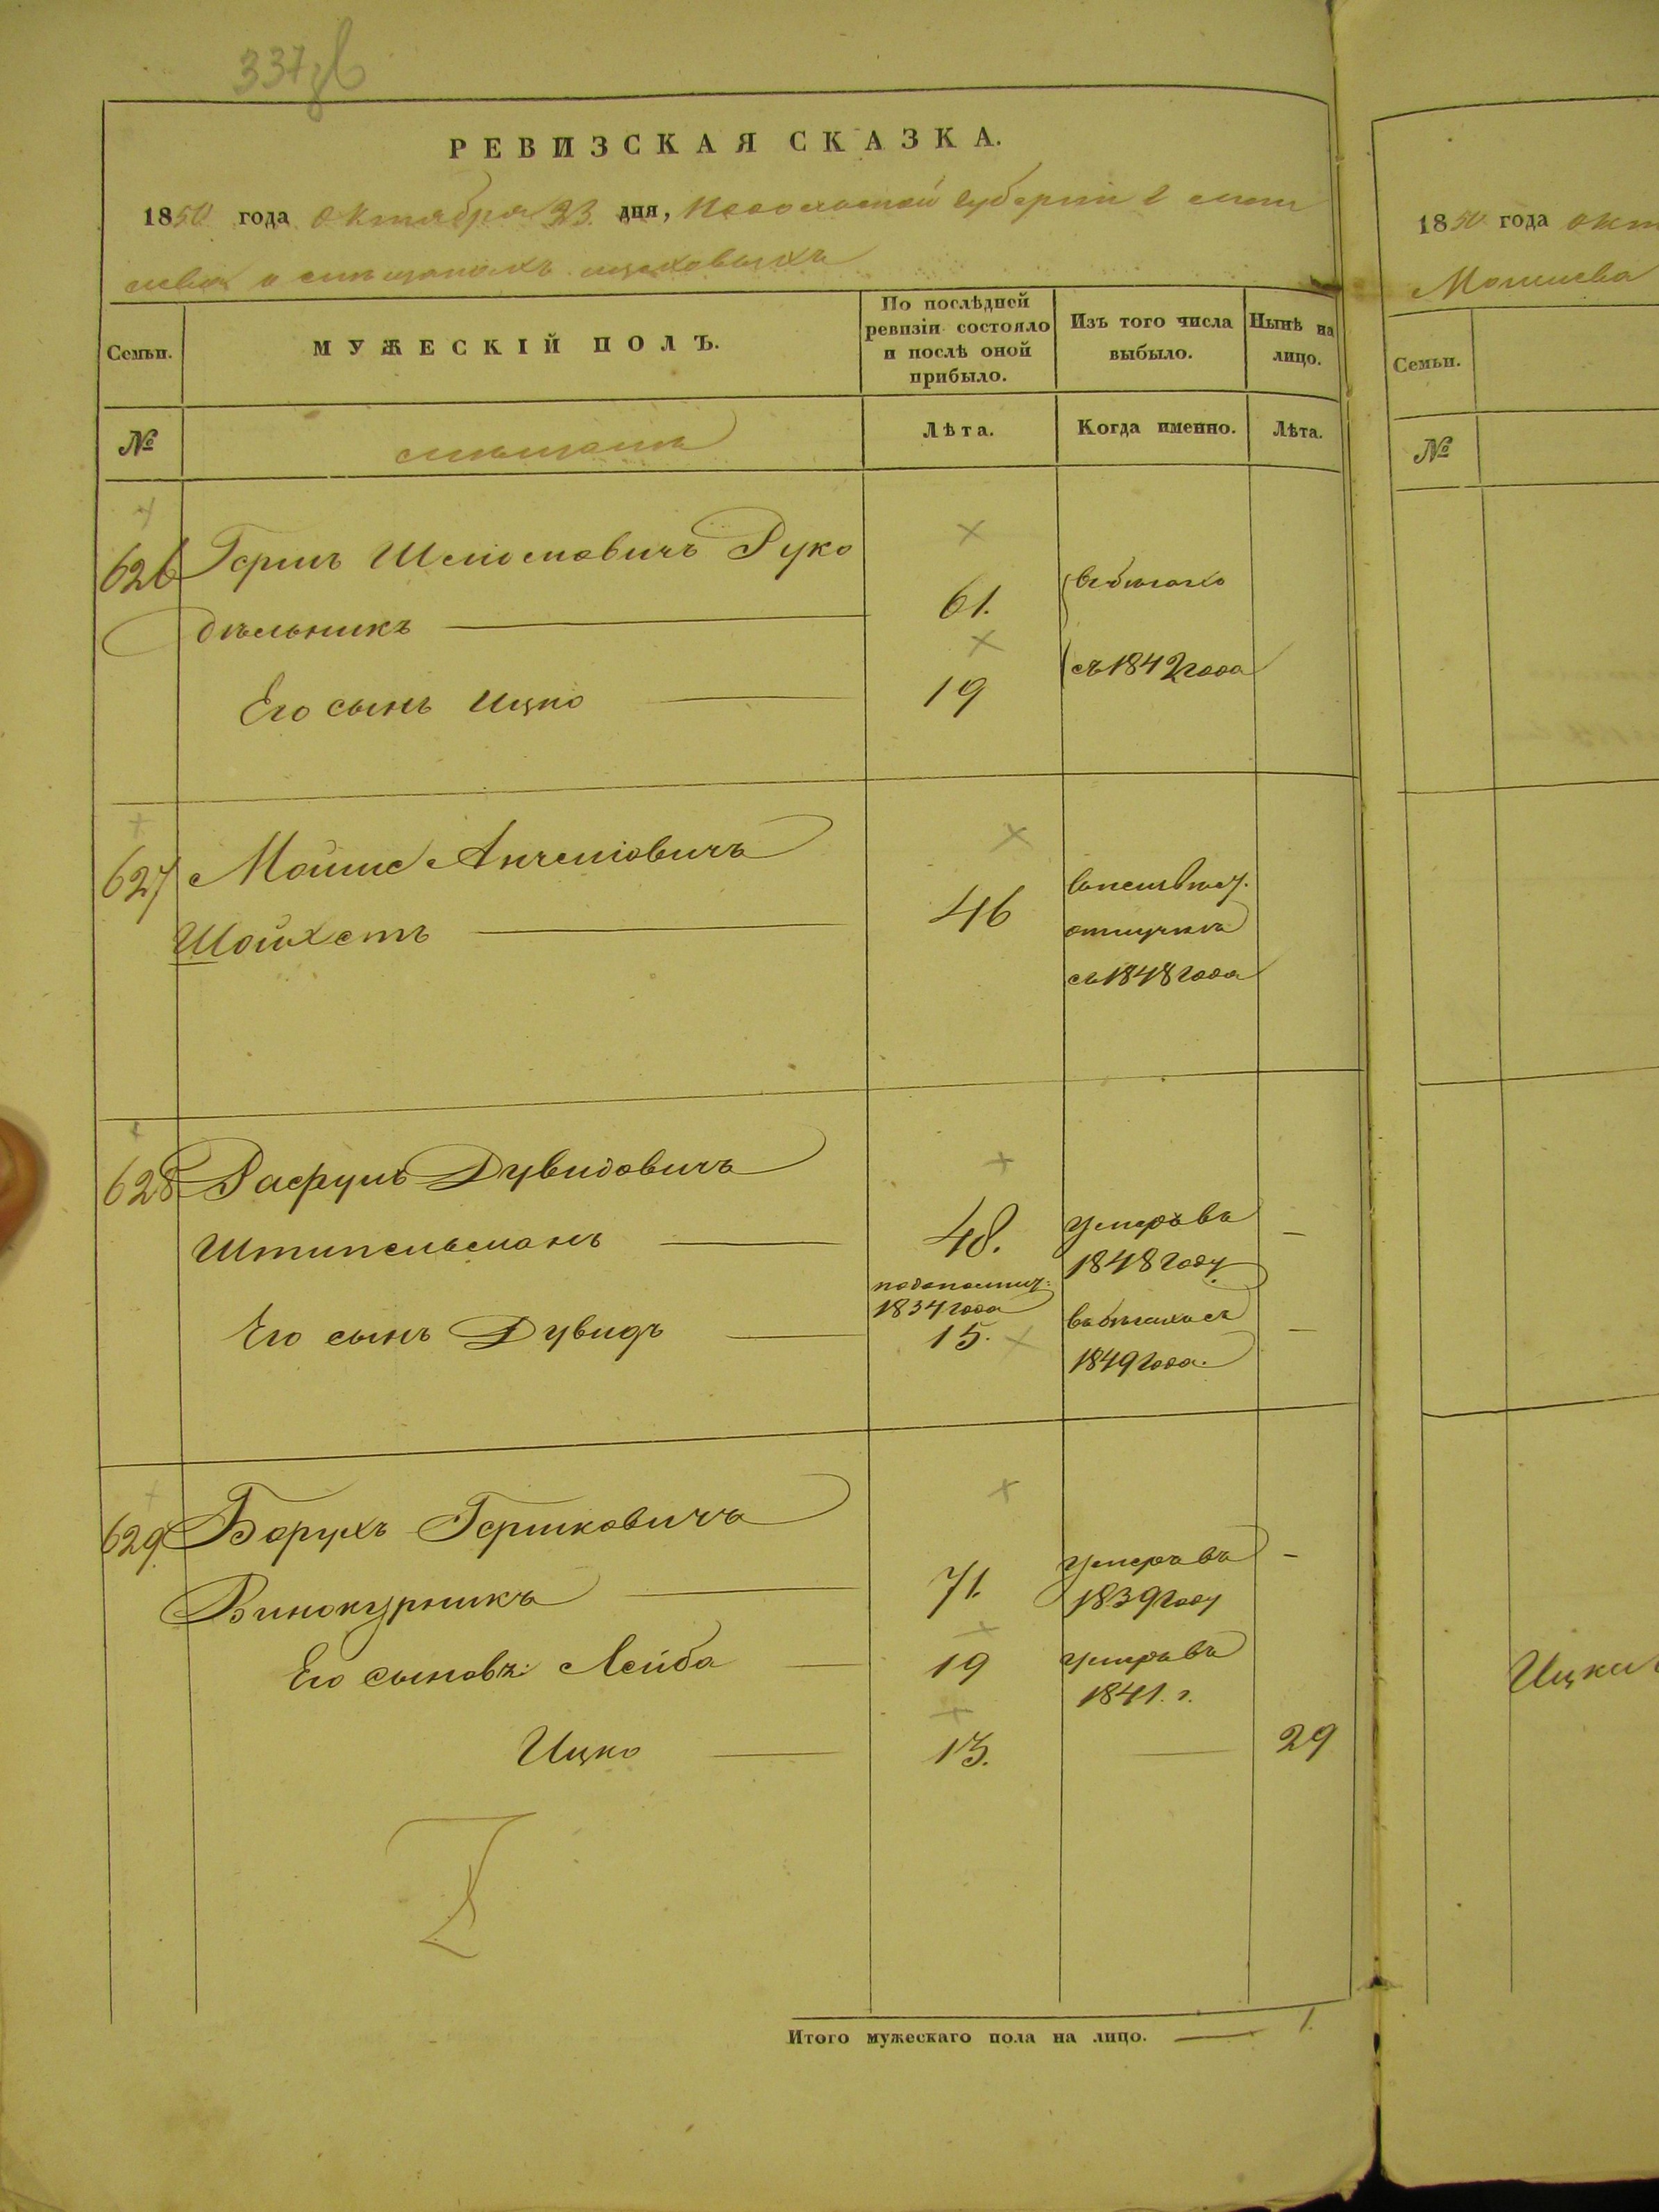 337
РЕВИЗСКАЯ СКАЗКА.
1850 года октября 23 дня, Подольской губерніи г. Моги
лева о мѣщанахъ
Семьи.
МУЖЕСКІЙ ПОЛЪ.
По послѣдней ревизіи состояло и послѣ оной прибыло.
Изъ того числа выбыло.
Нынѣ на лицо.
№
мѣщане
Лѣта.
Когда именно.
Лѣта.
626 Гершъ Шліомовичъ Руко
дѣльникъ 61. въ бѣгахъ
Его сынъ Ицко 19 съ 1842 года
627 Мойше Анчеліовичъ
Шойхетъ 46
отлучкѣ
съ 1848 года
628 Рафулъ Дувидовичъ
Штипельманъ 48. умеръ въ
1848 году
1834 года
Его сынъ Дувидъ 15. въ бѣгахъ съ
1849 года.
629 Борухъ Гершковичъ
Винокурникъ 71. умеръ въ
1839 году
Его сыновъя: Лейба 19 умеръ въ
1841. г.
Ицко 13. 29
Итого мужескаго пола на лицо. 1.
1850 года окт
Могилева
Семьи.
№
Ицки